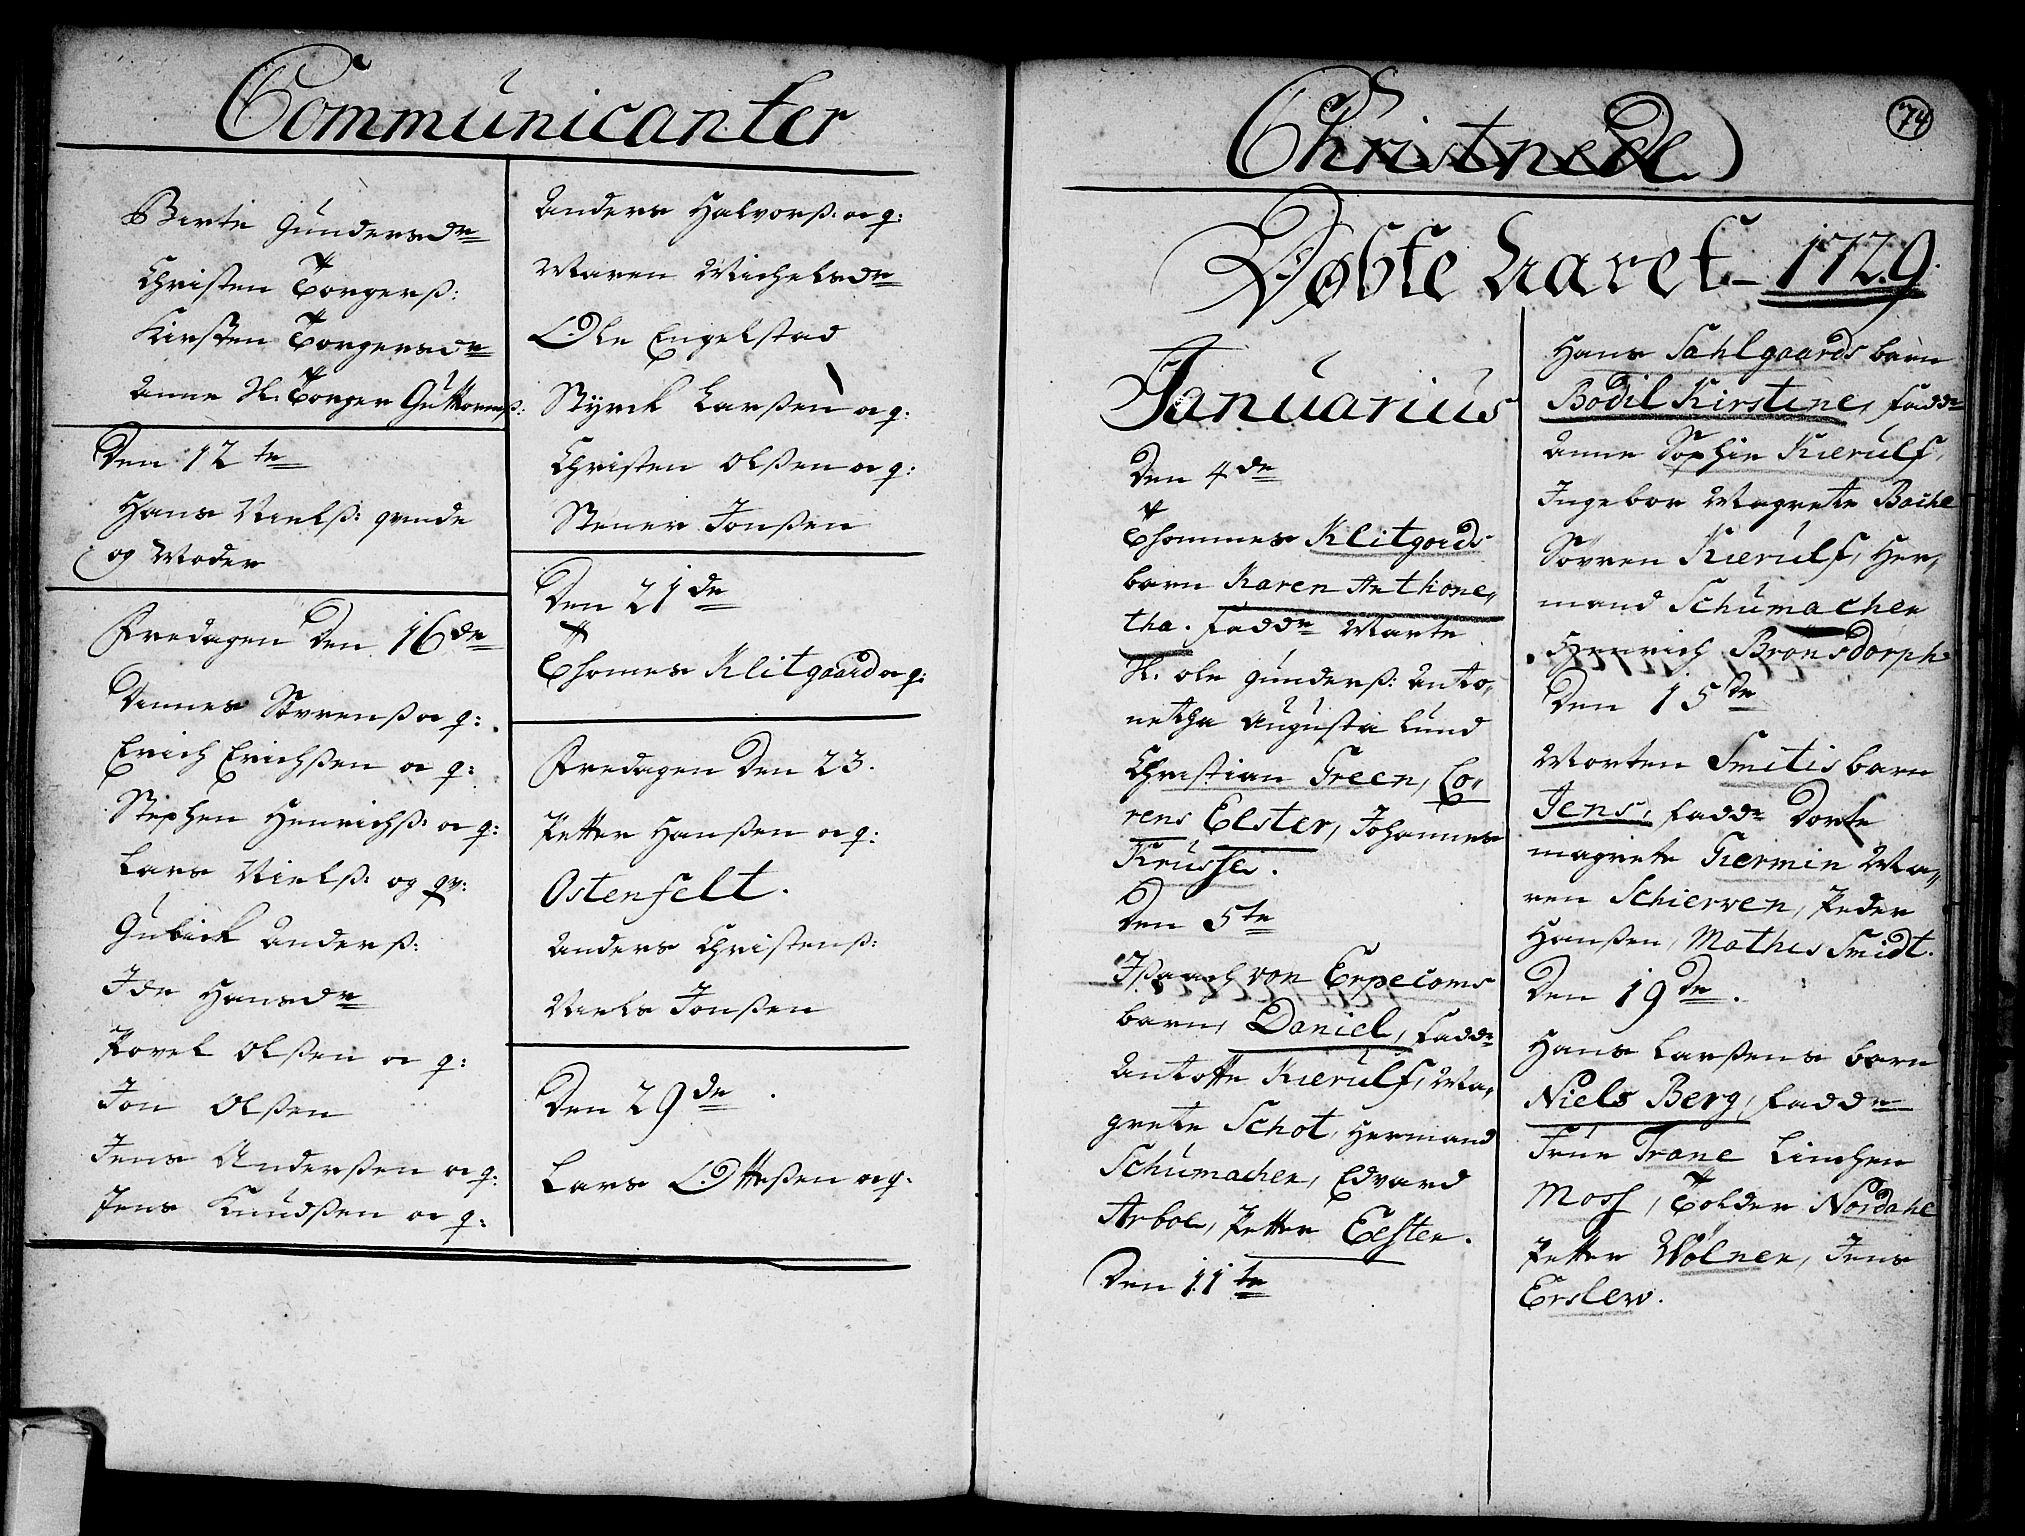 Communicanter
Birte Gundersdr
Christen Torgerß:
Kirsten Torgersdr
Anne Sl. Torger Guttormß:
Den 12te
Hans Nielß: qvinde
og Moder
Fredagen Den 16de
Annes Styrenß o q:
Erich Erichßen o q:
Stephen Henrichß: o q:
Lars Nielß: og qv:
Gubick Anderß:
Ide Hansdr
Povel Olßen o q:
Jon Olßen
Jens Anderßen o q:
Jens Knudßen o q:
Anders Halvorß: o q:
Maren Michelsdr
Ole Engelstad
Styrck Larßen o q:
Christen Olßen o q:
Stener Jonßen
Den 21de
Thomes Klitgaard o q:
Fredagen Den 23.
Petter Hanßen o q:
Ostenfelt.
Anders Christenß:
Niels Jonßen
Den 29de
Lars Otteßen o q.
74
Christnede
Døbte Aaret 1729.
Januarius
Den 4de
Thommes Klitgords
barn Karen Anthone,
tha. Faddr Marte
Sl. Ole Gunderß: Anto,
netha Augusta Lund
Christian Green, Lo,
rens Elster, Johannes
Kruse.
Den 5te
Isaach von Erpecoms
barn, Daniel, Faddr
Antotte Kierulf, Ma,
grete Schot, Hermand
Schumacher, Edvard
Arboe, Petter Elster.
Den 11te
Hans Sahlgaards barn
Bodil Kirstine, Faddr
Anne Sophie Kierulf,
Ingebor Magrete Bache
Sørren Kierulf, Her,
mand Schumacher
Henrich Bronsdorph
Den 15de
Morten Smitis barn
Jens, Faddr Dorte
magrete Germin Ma,
ren Schierven, Peder
Hanßen, Mathis Smidt.
Den 19de.
Hans Larßens barn
Niels Berg, Faddr
Frue Trane Linchen
Moss, Tolder Nordahl
Petter Wølner, Jens
Erslew.